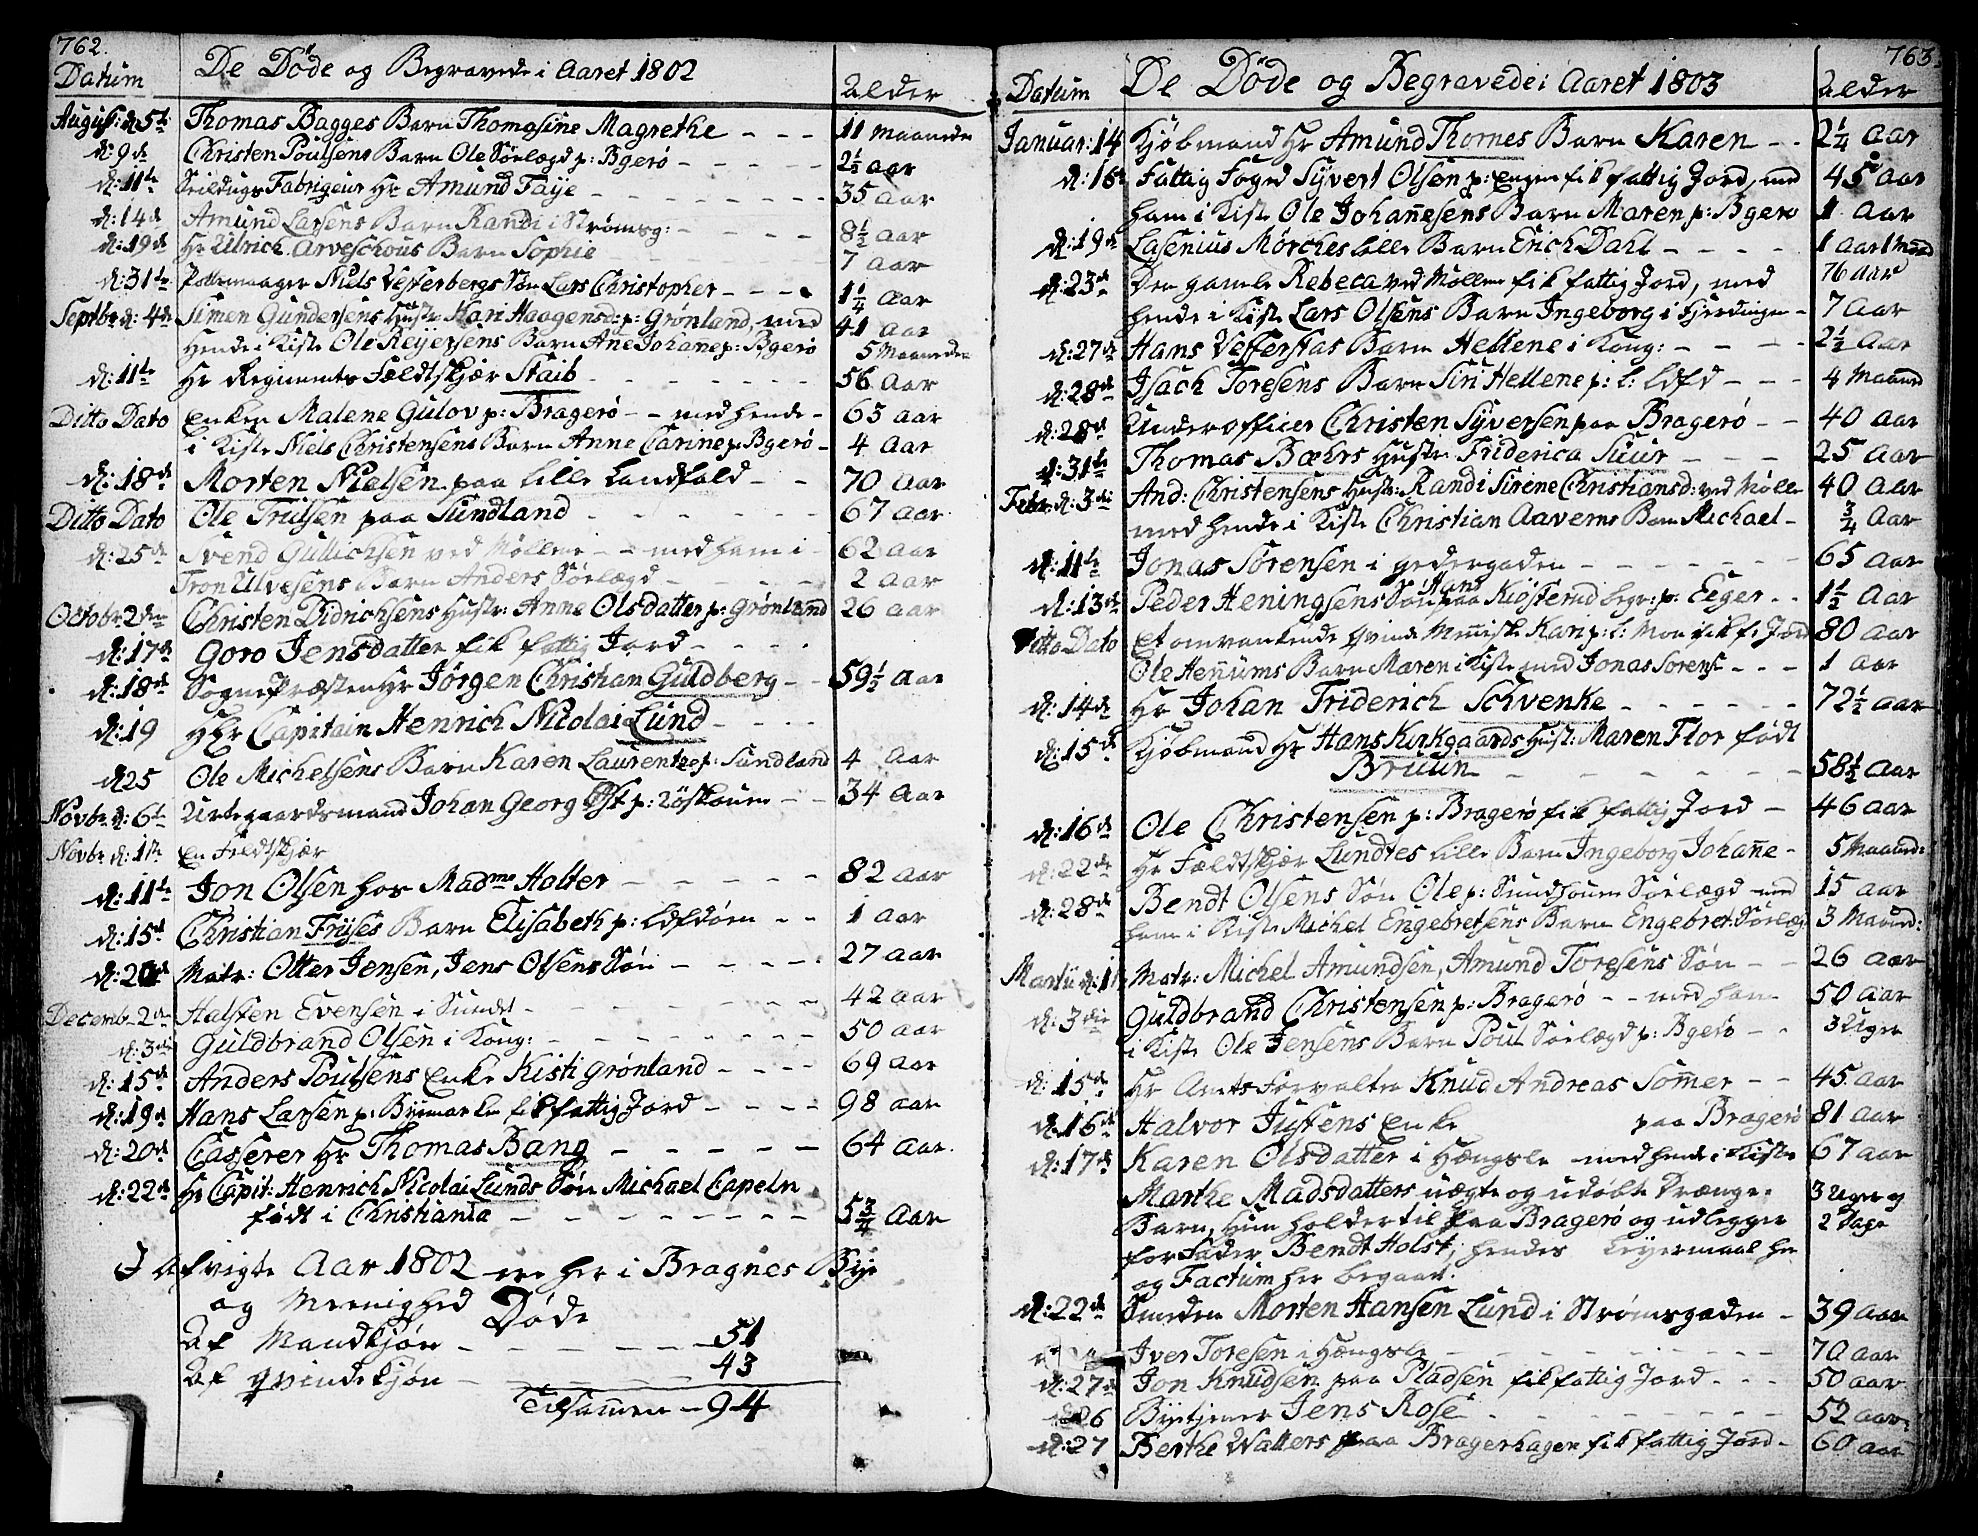 762.
De Døde og Begravede i Aaret 1802
Datum
Alder
August: d: 5te Thomas Bagges Barn Thomasine Magrethe - - - 11 Maaneder
d: 9de Christen Poulsens Barn Ole Sørlægd p: Bgerø - - - - - 2½ Aar
d: 11te Seildugs Fabriqeur Hr Amund Faye - - - - - - - 35 Aar
d: 14de Amund Larsens Barn Randi i Strømsg: - - - - 8½ Aar
d: 19de Hr Ulrich Arveschous Barn Sophie - - - - 7 Aar
d: 31te Niels Vesterbergs Søn Lars Christopher - - - - 1¼ Aar
Septbr d: 4de Simen Gundersens Hustr Kari Haagensd: p: Grønland, med 41 Aar
Hende i Kiste Ole Reyersens Barn Ane Johane p: Bgerø 5 Maaneder
d: 11te Hr Regiments Feldtskjær Staib - - - - - - 56 Aar
Ditto Dato Enken Malene Gulov p: Bragerø - - med hende - 63 Aar
i Kiste Neis Christensens Barn Anne Carine p: Bgerø - 4 Aar
d: 18de Morten Nielsen paa Lille Landfald - - 70 Aar
Ditto Dato Ole Trulsen paa Sundland - - - - - - 67 Aar
d: 25de Svend Gullichsen ved Møllene - - med ham i - 62 Aar
Tron Ulvesens Barn Anders Sørlægd - - - - - 2 Aar
Octobr 2den Christen Didrichsens Hustr: Anne Olsdatter p: Grønland 26 Aar
d: 17de Goro Jensdatter fik fattig Jord - - - -
d: 18de SognePræsten Hr Jørgen Christian Guldberg - - 59½ Aar
d: 19 HHr Capitain Henrich Nicolai Lund - - - -
d 25 Ole Michelsens Barn Karen Laurentze p: Sundland 4 Aar
Novbr d: 6te Urtegaardsmand Johan Georg Ost p: Løskouen - - 34 Aar
Novbr d: 1ste En Feldtskjær
d: 11te Jon Olsen hos Madme Holter - - - - - 82 Aar
d: 15de Christian Fryses Barn Elisabeth p: Ldfdøen - - 1 Aar
d: 20de Matr: Otter Jensen, Jens Olsens Søn - - - - 27 Aar
Decemb. 2den Halsten Evensen i Sundet - - - - - - 42 Aar
d: 3die Guldbrand Olsen i Kong: - - - - - - - 50 Aar
d: 15de Anders Poulsens Enke Kisti Grønland - - - - 69 Aar
d: 19de Hans Larsen p: Byemarken fik fattig Jord - - - - 98 Aar
d: 20de Casserer Hr Thomas Bang - - - - - 64 Aar.
d: 22de Hr Capit: Henrich Nicolai Lunds Søn Michael Capeln
født i Christiania - - - - - - - - 5¾ Aar
I Afvigte Aar 1802 ere her i Bragnes Bye
og Menighed Døde
Af Mandkjøn - - - - - - 51
Af Qvindekjøn - - - - - 43
Tilsammen - 94
763.
De Døde og Begravede i Aaret 1803
Datum
Alder
Januar: 14 Kjøbmand Hr Amund Thornes Barn Karen - - 2¼ Aar
d: 16 Fattig Foged Syvert Olsen p: Engen fik fattig Jord, med 45 Aar
ham i Kiste Ole Johannesens Barn Maren p: Bgerø 1 Aar
d: 19de Lasenius Mørches lille Barn Erich Dahl - - - - 1 Aar 1 Mnd
d: 23de Den gamle Rebeca ved Møllen fik fattig Jord, med 76 Aar
hende i Kiste Lars Olsens Barn Ingeborg i Fjerdingen - 7 Aar
d: 27de Hans Vefferstas Barn Hellene i Kong: - - - - 2½ Aar
d: 28de Isach Toresens Barn Siri Hellene p: l: Ldfd - - - 4 Maaned
d: 28de Underofficer Christen Syversen paa Bragerø - - 40 Aar
d: 31te Thomas Bæhrs Hustr Friderica Suur - - - - 25 Aar
Febr: d: 3die And: Christensens Hustr: Randi Sirene Christiansd: ved Mølle 40 Aar
med hende i Kiste Christian Aavems Barn Michael - ¾ Aar
d: 11te Jonas Sørensen i Gedergaden - - - - - - - 65 Aar
d: 13de Peder Heningsens Søn Hans paa Kiøsterud begr: p: Eeger - - 1½ Aar
Ditto Dato Et omvankende Qvinde Menniske Kari p: l: Moe fik f: Jord 80 Aar
Ole Hennums Barn Maren i Kiste med Jonas Sørens: - - - 1 Aar
d: 14de Hr Johan Friderich Schvenke - - - - - 72½ Aar
d: 15de Kjøbmand Hr Hans Kirkgaards Hust: Maren Flor født
Bruun - - - - - - - - 58½ Aar
d: 16de Ole Christensen p: Bragerø fik fattig Jord - 46 Aar
d: 22de Hr Feldtskjær Lundtes lille Barn Ingeborg Johanne - 5 Maaned:
d: 28de Bendt Olsens Søn Ole p: Sundhouen Sørlægd med 15 Aar
ham i Kiste Michel Engebretsens Barn Engebret Sørlægd 3 Maaned:
Martii d: 1 Matr: Michel Amundsen, Amund Toresens Søn - - 26 Aar
d: 3die Guldbrand Christensen p: Bragerø - - med ham 50 Aar
i Kiste Ole Jensens Barn Poul Sørlægd p: Bgerø - - 3 Uger
d: 15de Hr Amts Forvalter Knud Andreas Sommer - - 45 Aar
d: 16de Halvor Justens Enke paa Bragerø 81 Aar
d: 17de Karen Olsdatter i Hængsle med hende i Kiste 67 Aar
Marthe Madsdatters uægte og udøbte Drænge- 3 Uger og
Barn, Hun holder til paa Bragerø og udlegger 2 Dage
for Fader Bendt Holst; hendes Leyermaal her
og Factum her begaaet.
d: 22de Smeden Morten Hansen Lund i Strømsgaden - 39 Aar
Iver Toresen i Hængsle - - - - - - - 70 Aar
d: 27de Jon Knudsen paa Pladsen fik fattig Jord - - - 50 Aar
26 Byetjener Jens Rose - - - - - - - 52 Aar
d: 27 Berthe Walters paa Bragerhagen fik fattig Jord - 60 Aar